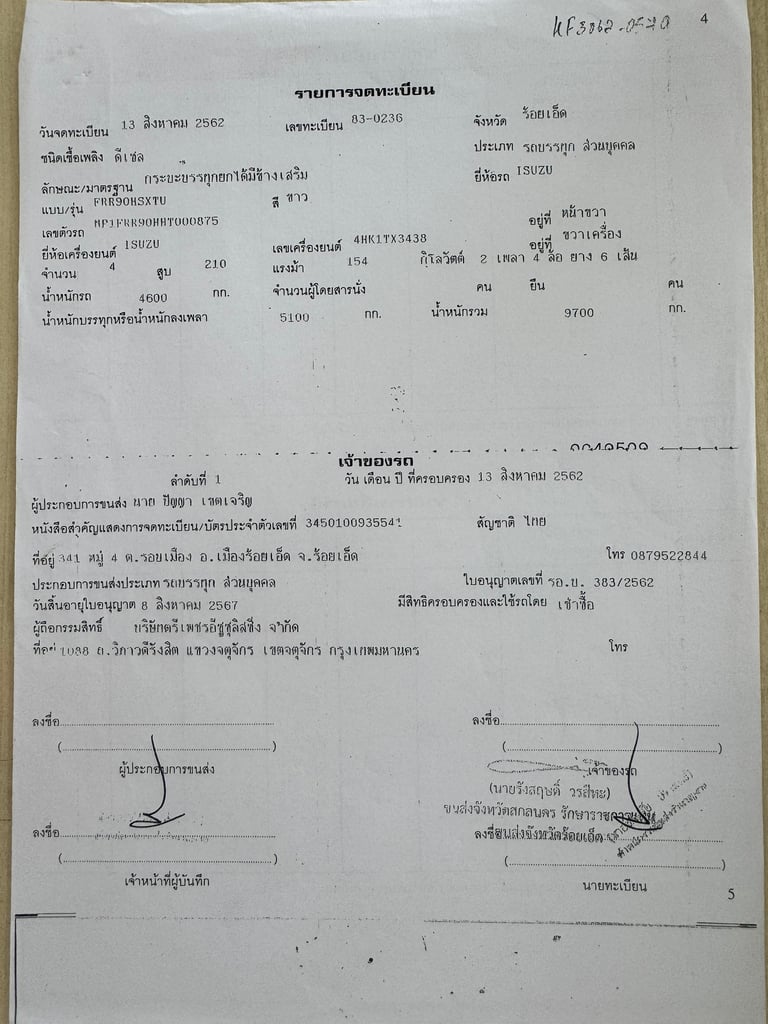 4
รายการจดทะเบียน
วันจดทะเบียน 13 สิงหาคม 2562 เลขทะเบียน 83-0236 จังหวัด ร้อยเอ็ด
ชนิดเชื้อเพลิง ดีเซล ประเภท รถบรรทุก ส่วนบุคคล
ลักษณะ/มาตรฐาน กระบะบรรทุกยกได้มีข้างเสริม ยี่ห้อรถ ISUZU
แบบ/รุ่น FRR90HSXTU สี ขาว
เลขตัวรถ MP1FRR90HHT000875 อยู่ที่ หน้าขวา
ยี่ห้อเครื่องยนต์ ISUZU เลขเครื่องยนต์ 4HK1TX3438 อยู่ที่ ขวาเครื่อง
จำนวน 4 สูบ 210 แรงม้า 154 กิโลวัตต์ 2 เพลา 4 ล้อ ยาง 6 เส้น
น้ำหนักรถ 4600 กก. จำนวนผู้โดยสารนั่ง คน ยืน คน
น้ำหนักบรรทุกหรือน้ำหนักลงเพลา 5100 กก. น้ำหนักรวม 9700 กก.
เจ้าของรถ
ลำดับที่ 1 วัน เดือน ปี ที่ครอบครอง 13 สิงหาคม 2562
ผู้ประกอบการขนส่ง นาย ปัญญา เขตเจริญ
หนังสือสำคัญแสดงการจดทะเบียน/บัตรประจำตัวเลขที่ 3450100935541 สัญชาติ ไทย
ที่อยู่ 341 หมู่ 4 ต.รอบเมือง อ.เมืองร้อยเอ็ด จ.ร้อยเอ็ด โทร 0879522844
ประกอบการขนส่งประเภท รถบรรทุก ส่วนบุคคล ใบอนุญาตเลขที่ รอ.บ. 383/2562
วันสิ้นอายุใบอนุญาต 8 สิงหาคม 2567 มีสิทธิครอบครองและใช้รถโดย เช่าซื้อ
ผู้ถือกรรมสิทธิ์ บริษัทตรีเพชรอีซูซุลิสซิ่ง จำกัด
ที่อยู่ 1088 ถ.วิภาวดีรังสิต แขวงจตุจักร เขตจตุจักร กรุงเทพมหานคร โทร
ลงชื่อ ลงชื่อ
( ) ( )
ผู้ประกอบการขนส่ง เจ้าของรถ
(นายรังสฤษดิ์ วรสีหะ)
ขนส่งจังหวัดสกลนคร รักษาราชการแทน
ลงชื่อ ลงชื่อ ขนส่งจังหวัดร้อยเอ็ด
( ) ( )
เจ้าหน้าที่ผู้บันทึก นายทะเบียน
5